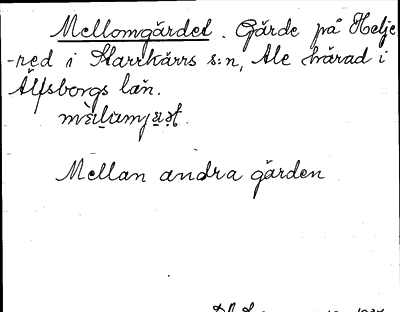 Mellomgärdet. Gärde på Helje
-red i Starrkärrs s:n, Ale härad i
Älfsborgs län.
Mellan andra gärden